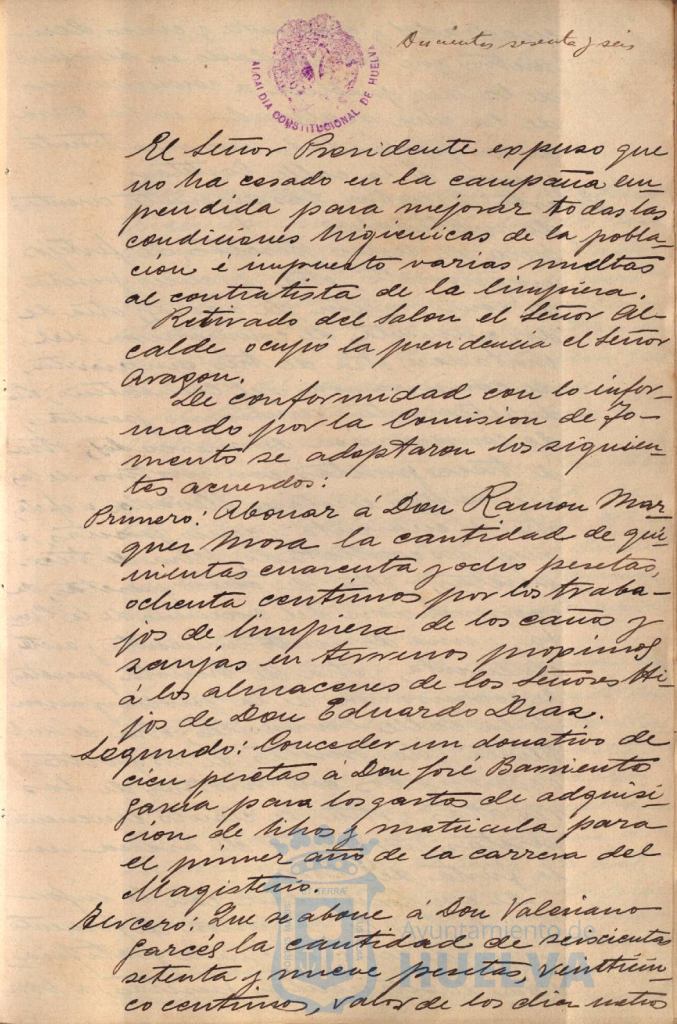 Doscientos sesenta y seis
ALCALDIA CONSTITUCIONAL DE HUELVA
El Señor Presidente expuso que
no ha cesado en la campaña em-
pendida para mejorar todas las
condiciones higienicas de la pobla-
cion é impuesto varias multas
al contratista de la limpieza.
Retirado del Salon el Señor Al-
calde ocupó la presidencia el Señor
Aragon.
De conformidad con lo infor-
mado por la Comision de Fo-
mento se adoptaron los siguien-
tes acuerdos:
Primero: Abonar á Don Ramon Mar-
quez Mora la cantidad de qui-
nientas cuarenta y ocho pesetas,
ochenta centimos por los traba-
jos de limpieza de los caños y
zanjas en terrenos proximos
á los almacenes de los Señores Hi-
jos de Don Eduardo Diaz.
Segundo: Conceder un donativo de
cien pesetas á Don José Barriento
Garcia para los gastos de adquisi-
cion de libros y matricula para
el primer año de la carrera del
Magisterio.
Tercero: Que se abone á Don Valeriano
Garcés la cantidad de seiscientas
setenta y nueve pesetas, veintiun-
co centimos, valor de los diez metros
Ayuntamiento de
HUELVA